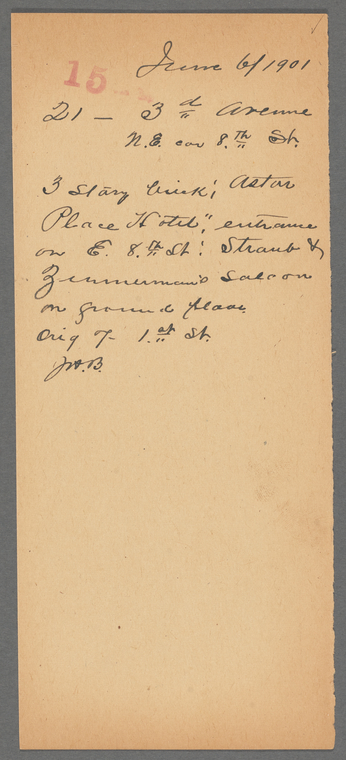 June 6/1901
15
21 — 3d Avenue
N.E. cor 8.th St.
3 story brick; Astor
Place Hotel", entrance
on E. 8.th St: Straub &
Zimmerman's saloon
on ground floor.
Orig 7- 1.st St.
J.A.B.